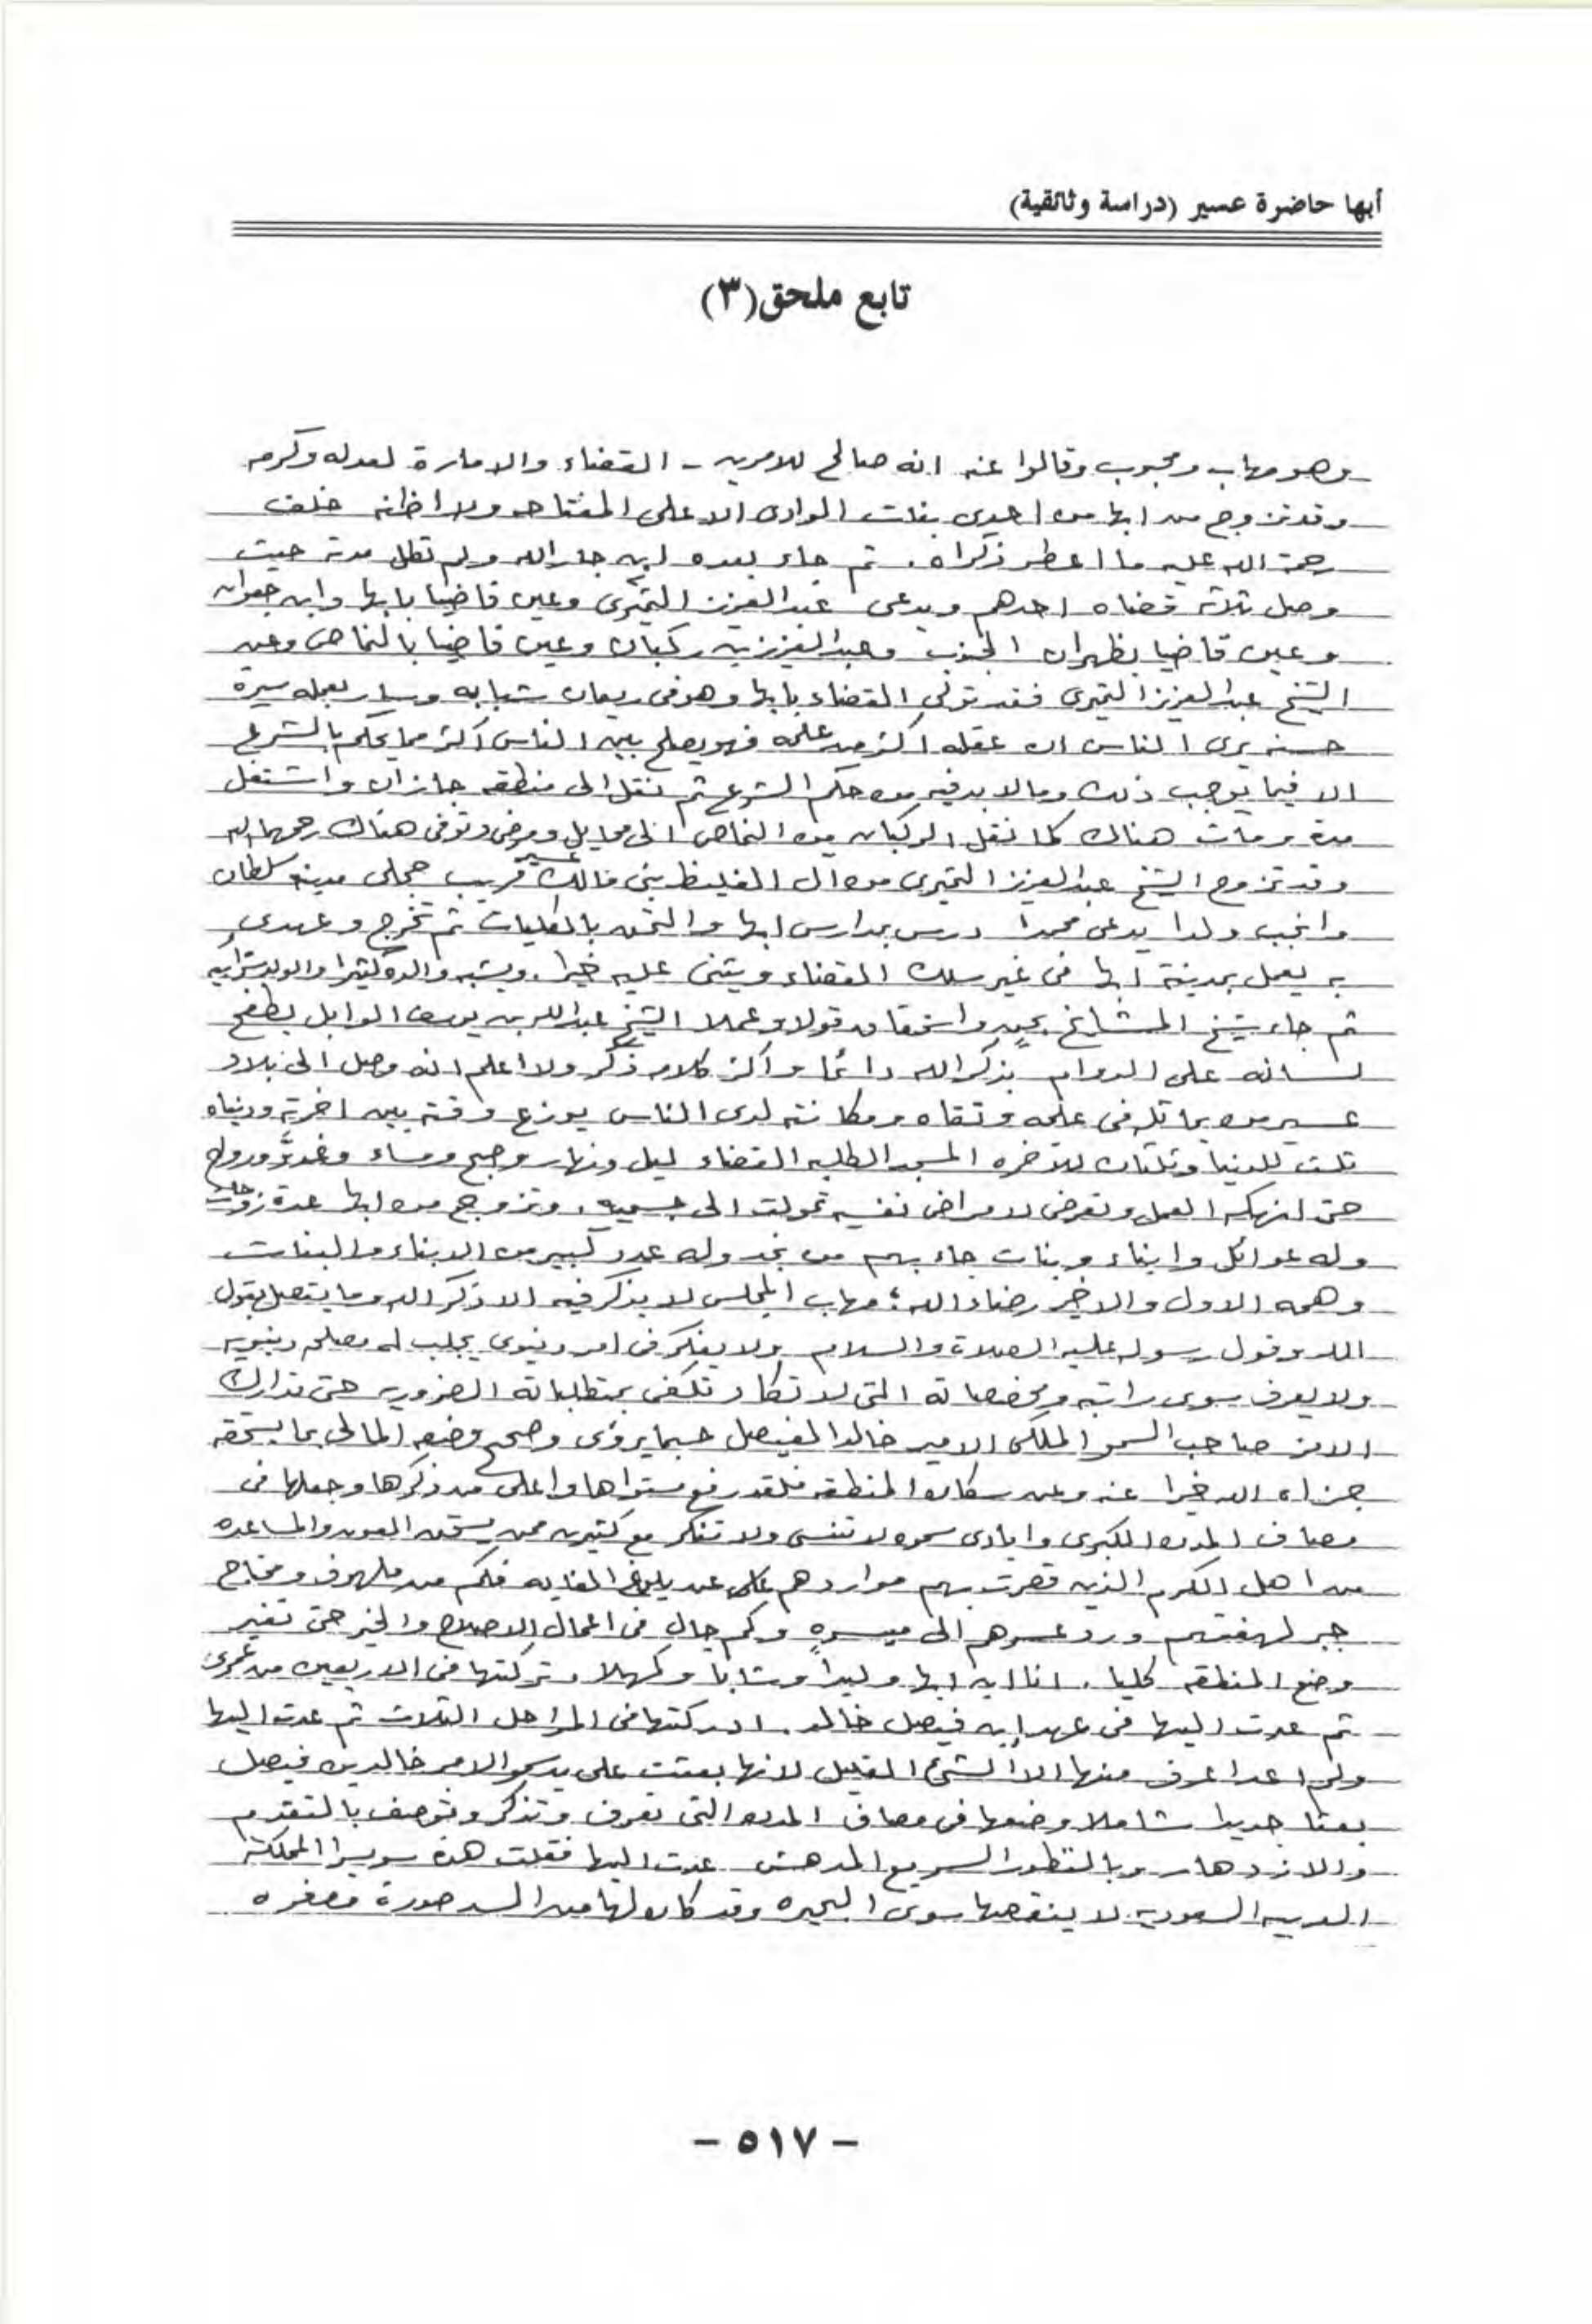 أبها حاضرة عسير (دراسة وثائقية)
تابع ملحق (٣)
وهو مهاب ومحبوب وقالوا عنه انه صالح للامرين - القضاء والامارة لعدله وكرمه
وقد تزوج من ابها من احدى بنات الوادى الاعلى المفتاحه ولا اظنه خلف
رحمة الله عليه ما اعطر ذكراه. ثم جاء بعده ابن جار الله ولم تطل مدته حيث
وصل ثلاثة قضاه احدهم ويدعى عبدالعزيز التميرى وعين قاضيا بابها وابن جعوان
وعين قاضيا بظهران الجنوب وعبدالعزيز بن ركبان وعين قاضيا بالنماص وعن
الشيخ عبدالعزيز التميرى فقد تولى القضاء بابها وهو فى ريعان شبابه وسار بعمله سيرة
حسنه يرى الناس ان عقله اكثر من علمه فهو يصلح بين الناس اكثر مما يحكم بالشرع
الا فيما يوجب ذلك ومالا بد فيه من حكم الشرع ثم نقل الى منطقه جازان واشتغل
مدة ومات هناك كما نقل الركبان من النماص الى محايل ومرض وتوفى هناك رحمهما الله
وقد تزوج الشيخ عبدالعزيز التميرى من ال الغليظ بنى مالك عسير قريب حجلى مدينة سلطان
وانجب ولدا يدعى محمدا درس بمدارس ابها والتحق بالكليات ثم تخرج وعهدى
به يعمل بمدينة ابها فى غير سلك القضاء ويثنى عليه خيرا. ويشبه والده كثيرا والولد سر ابيه
ثم جاء شيخ المشائخ بحق واستحقاق قولا وعملا الشيخ عبدالله بن يوسف الوابل يطفح
لسانه على الدوام بذكر الله دائما واكثر كلامه ذكر ولا اعلم انه وصل الى بلاد
عسير من يماثله فى علمه وتقاه ومكانته لدى الناس يوزع وقته بين اخرته ودنياه
ثلث للدنيا وثلثان للآخره المسجد الطلبه القضاء ليل ونهار وصبح ومساء وغدوّ ورواح
حتى انهكه العمل وتعرض لامراض نفسيه تحولت الى جسميه. وتزوج من ابها عدة زوجات
وله عوائل وابناء وبنات جاء بهم من نجد وله عدد كبير من الابناء والبنات
وهمه الاول والاخير رضاء الله؛ مهاب المجلس لا يذكر فيه الا ذكر الله وما يتصل بقول
الله وقول رسوله عليه الصلاة والسلام ولا يفكر فى امر دنيوى يجلب له مصلحه دنيويه
ولا يعرف سوى راتبه ومخصصاته التى لا تكاد تكفى بمتطلباته الضروريه حتى تدارك
الامر صاحب السمو الملكى الامير خالد الفيصل حسبما يروى وصحح وضعه المالى بما يستحقه
جزاه الله خيرا عنه وعن سكان المنطقه فلقد رفع مستواها واعلى من ذكرها وجعلها فى
مصاف المدن الكبرى وايادى سموه لا تنسى ولا تنكر مع كثيرين ممن يستحق العون والمساعده
من اهل الكرم الذين قصرت بهم مواردهم عن بلوغ الغايه فكم من ملهوف ومحتاج
جبر لهفتهم ورد عسرهم الى ميسرةٍ وكم جال فى اعمال الاصلاح والخير حتى تغير
وضع المنطقه كليا. انا ابن ابها وليدا وشابا وكهلا. تركتها فى الاربعين من عمرى
ثم عدت اليها فى عهد ابن فيصل خالد. ادركتها فى المراحل الثلاث ثم عدت اليها
ولم اعد اعرف منها الا الشئ القليل لانها بعثت على يد سمو الامير خالد بن فيصل
بعثا جديدا شاملا وضعها فى مصاف المدن التى تعرف وتذكر وتوصف بالتقدم
والازدهار وبالتطور السريع المدهش عدت اليها فقلت هذه سويسرا المملكة
العربيه السعوديه لا ينقصها سوى البحيره وقد كان لها من السد صورة مصغره
- ٥١٧ -